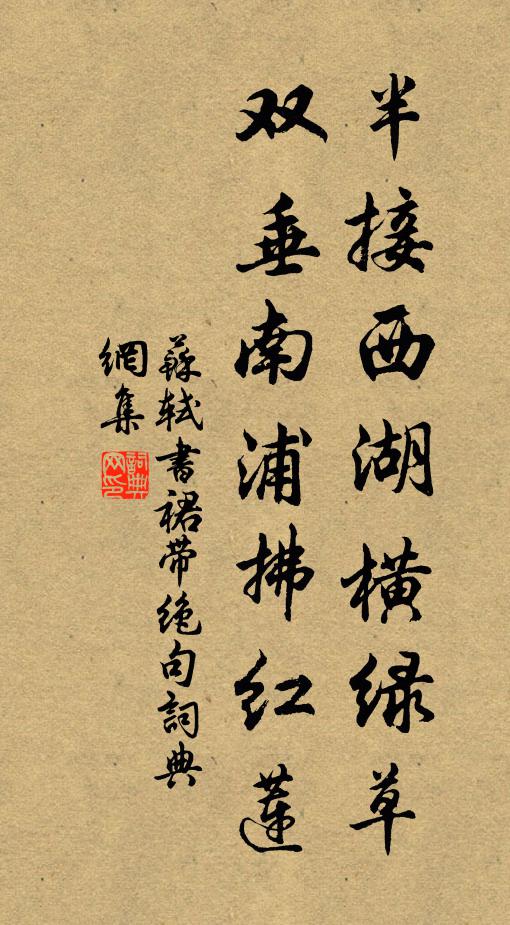 半接西湖横绿草
双垂南浦拂红莲
蘇轼書裙带绝句詞典
網集
詞典
网印